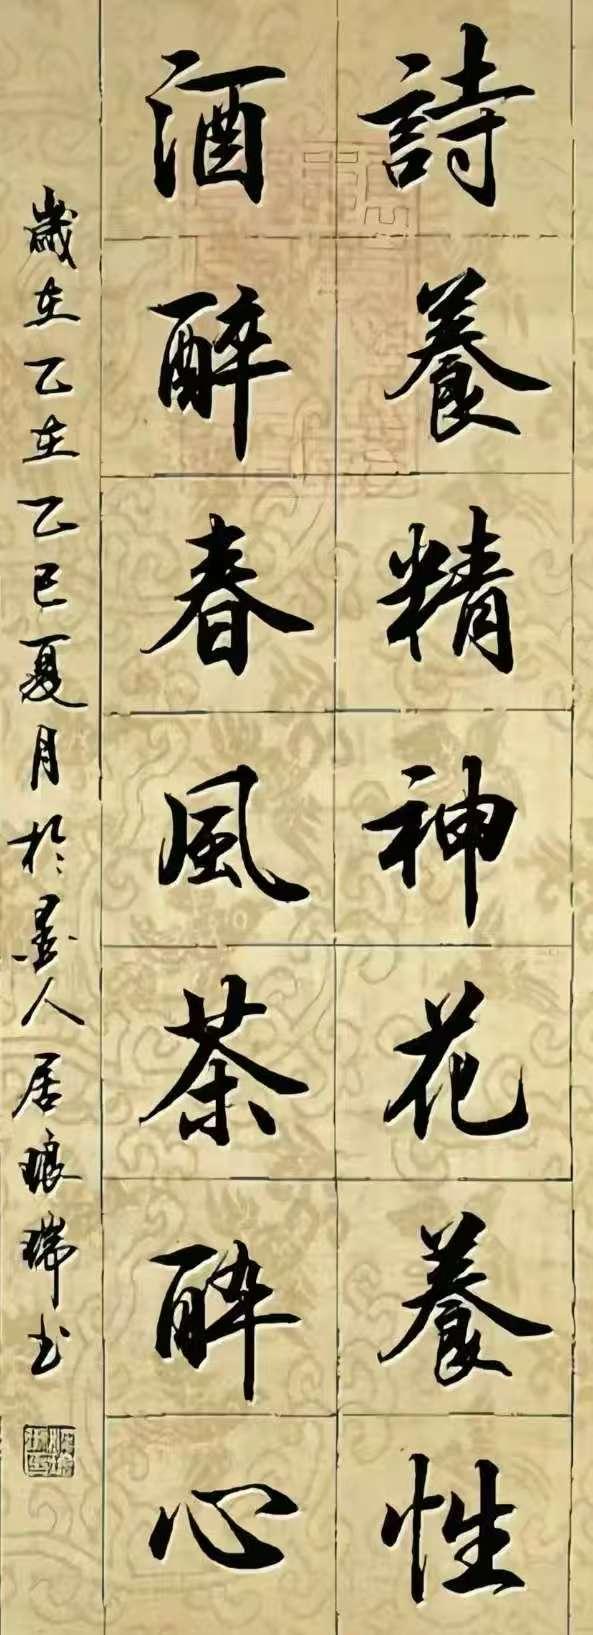 詩養精神花養性
酒醉春風茶醉心
歲在乙在乙巳夏月於墨人居琅瑞书